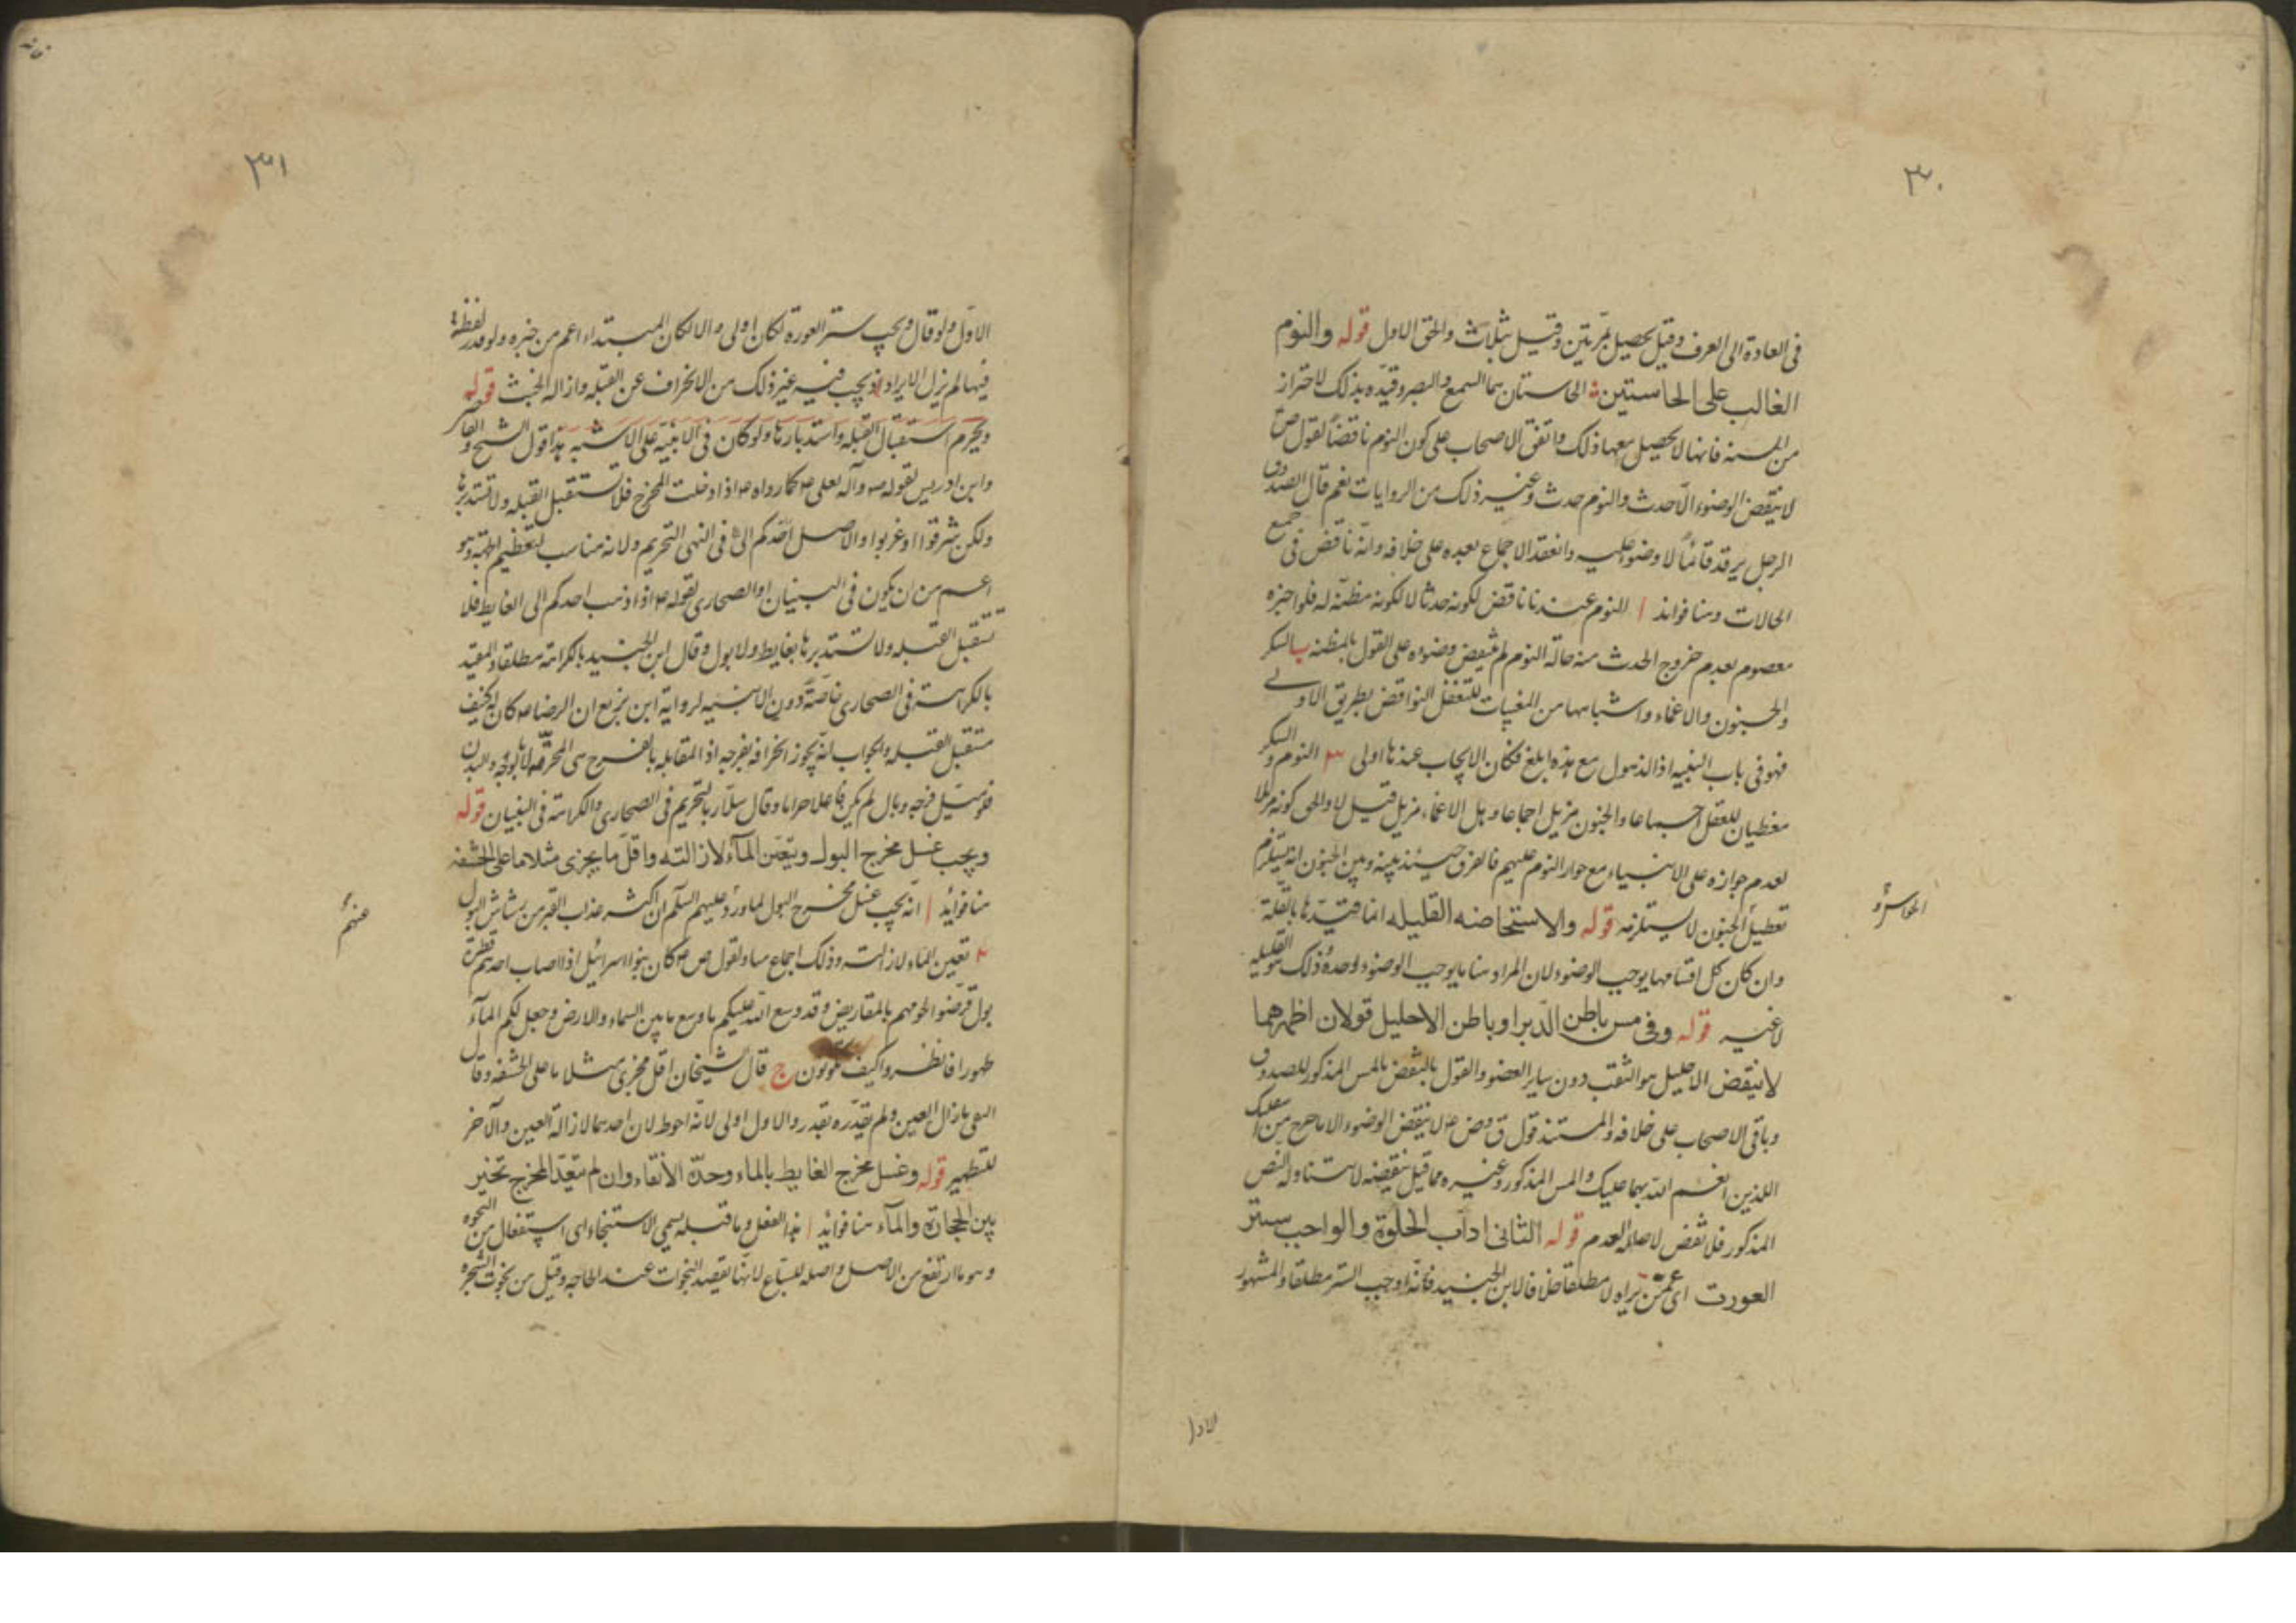 ٣٠
فى العادة الى العرف وقيل يحصل بمرتين وقيل بثلاث والحق الاول قوله والنوم
الغالب على الحاستين الحاستان هما السمع والبصر وقيده بذلك لاحتراز
من السنة فانها لا يحصل معها ذلك واتفق الاصحاب على كون النوم ناقضا لقول ص
لا ينقض الوضوء الا حدث والنوم حدث وغير ذلك من الروايات نعم قال الصدوق
الرجل يرقد قائما لا وضوء عليه وانعقد الاجماع بعده على خلافه وانه ناقض فى جميع
الحالات وهنا فوائد ا النوم عندنا ناقض لكونه حدثا لا لكونه مظنة له فلو اخبره
معصوم بعدم خروج الحدث منه حالة النوم لم ينقض وضوءه على القول بالمظنه ب السكر
والجنون والاغماء واشباهها من المغيبات للعقل النواقض بطريق الاولى
فهو فى باب التنبيه اذ الذهول مع هذه ابلغ فكان الايجاب عندها اولى ٣ النوم والسكر
مغطيان للعقل اجماعا والجنون مزيل اجماعا وهل الاغماء مزيل قيل لا والحق كونه مزيلا
لعدم جوازه على الانبياء مع جواز النوم عليهم فالفرق حينئذ بينه وبين الجنون انه يستلزم
تعطيل الجنون لا يستلزمه قوله والاستحاضه القليله انما قيدها بالقلة
الحواس و
وان كان كل اقسامها يوجب الوضوء لان المراد هنا ما يوجب الوضوء وحده وذلك هو القليله
لا غير قوله وفى مس باطن الدبر او باطن الاحليل قولان اظهرهما
لا ينقض الاحليل هو الثقب دون ساير العضو والقول بالنقض بالمس المذكور للصدوق
وباقى الاصحاب على خلافه والمستند قول ق وض ع لا ينقض الوضوء الا ما خرج من طرفيك
اللذين انعم الله بهما عليك والمس المذكور وغيره مما قيل بنقضه لا يتناوله النص
المذكور فلا نقض لاصالة العدم قوله الثانى اداب الخلوة والواجب ستر
العورت اى عمن يراه لا مطلقا خلافا لابن الجنيد فانه اوجب الستر مطلقا والمشهور
الاول
٣١
الاول ولو قال ويجب ستر العورة لكان اولى والا لكان المبتداء اعم من خبره ولو قدر لفظة
فيها لم يزل الايراد اذ يجب فيه غير ذلك من الانحراف عن القبله وازالة الخبث قوله
ويحرم استقبال القبله واستدبارها ولو كان فى الابنية على الاشبه هذا قول الشيخ و
وابن ادريس لقوله ص وآله لعلى ع كما رواه ع اذا دخلت المخرج فلا تستقبل القبله ولا تستدبرها
ولكن شرقوا او غربوا والاصل فى النهى التحريم ولانه مناسب لتعظيم القبلة وهو
اعم من ان يكون فى البنيان او الصحارى لقوله ع اذا ذهب احدكم الى الغايط فلا
تستقبل القبله ولا تستدبرها بغايط ولا بول وقال ابن الجنيد بالكراهة مطلقا والمفيد
بالكراهة فى الصحارى خاصة دون الابنيه لرواية ابن بزيع ان الرضا ع كان له كنيف
مستقبل القبله والجواب انه يجوز انحرافه بفرجه اذ المقابله بالفرج هى المحرمة لا بالوجه والبدن
فلو ميل فرجه وبال لم يكن فاعلا حراما وقال سلار بالتحريم فى الصحارى والكراهة فى البنيان قوله
ويجب غسل مخرج البول ويتعين المآء لازالته واقل ما يجزى مثلا ما على الحشفه
هنا فوايد ا انه يجب غسل مخرج البول لما ورد عليهم السلم ان اكثر عذاب القبر من رشاش البول
عنهم
٢ تعين الماء لازالته وذلك اجماع منا ولقول ص ع كان بنوا اسرائيل اذا اصاب احدهم قطرة
بول قرضوا لحومهم بالمقاريض وقد وسع الله عليكم باوسع ما بين السماء والارض وجعل لكم المآء
طهورا فانظروا كيف تكونون ج قال الشيخان اقل مجزى مثلا ما على الحشفه وقال
التقى ما زال العين ولم يقدره بقدر والاول اولى لانه احوط لان احدهما لازالة العين والآخر
للتطهير قوله وغسل مخرج الغايط بالماء وحده الانقاء وان لم يتعد المخرج تخير
بين الحجارة والمآء هنا فوايد ا هذا الفعل وما قبله يسمى الاستنجاء اى استفعال من النجوه
وهو ما ارتفع من الاصل واصله للسباع لانها تقصد النجوات عند الحاجه وقيل من نجوت الشجره